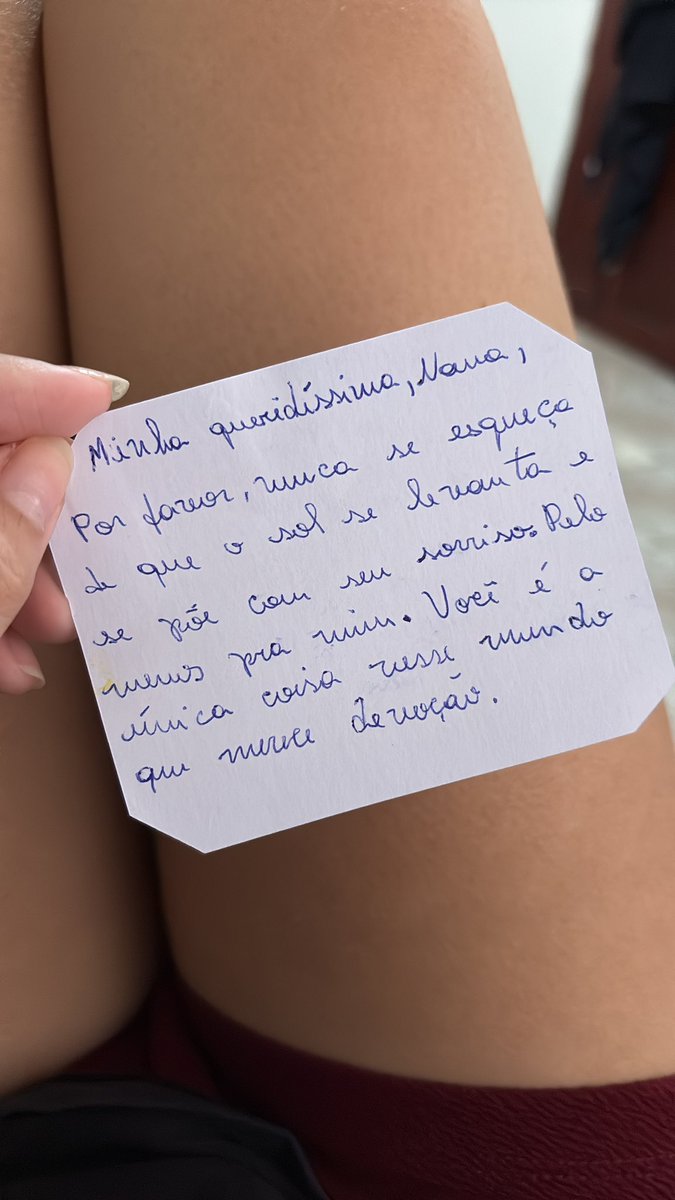 Minha queridíssima, Nana,
Por favor, nunca se esqueça
de que o sol se levanta e
se põe com seu sorriso. Pelo
menos pra mim. Você é a
única coisa nesse mundo
que merece devoção.